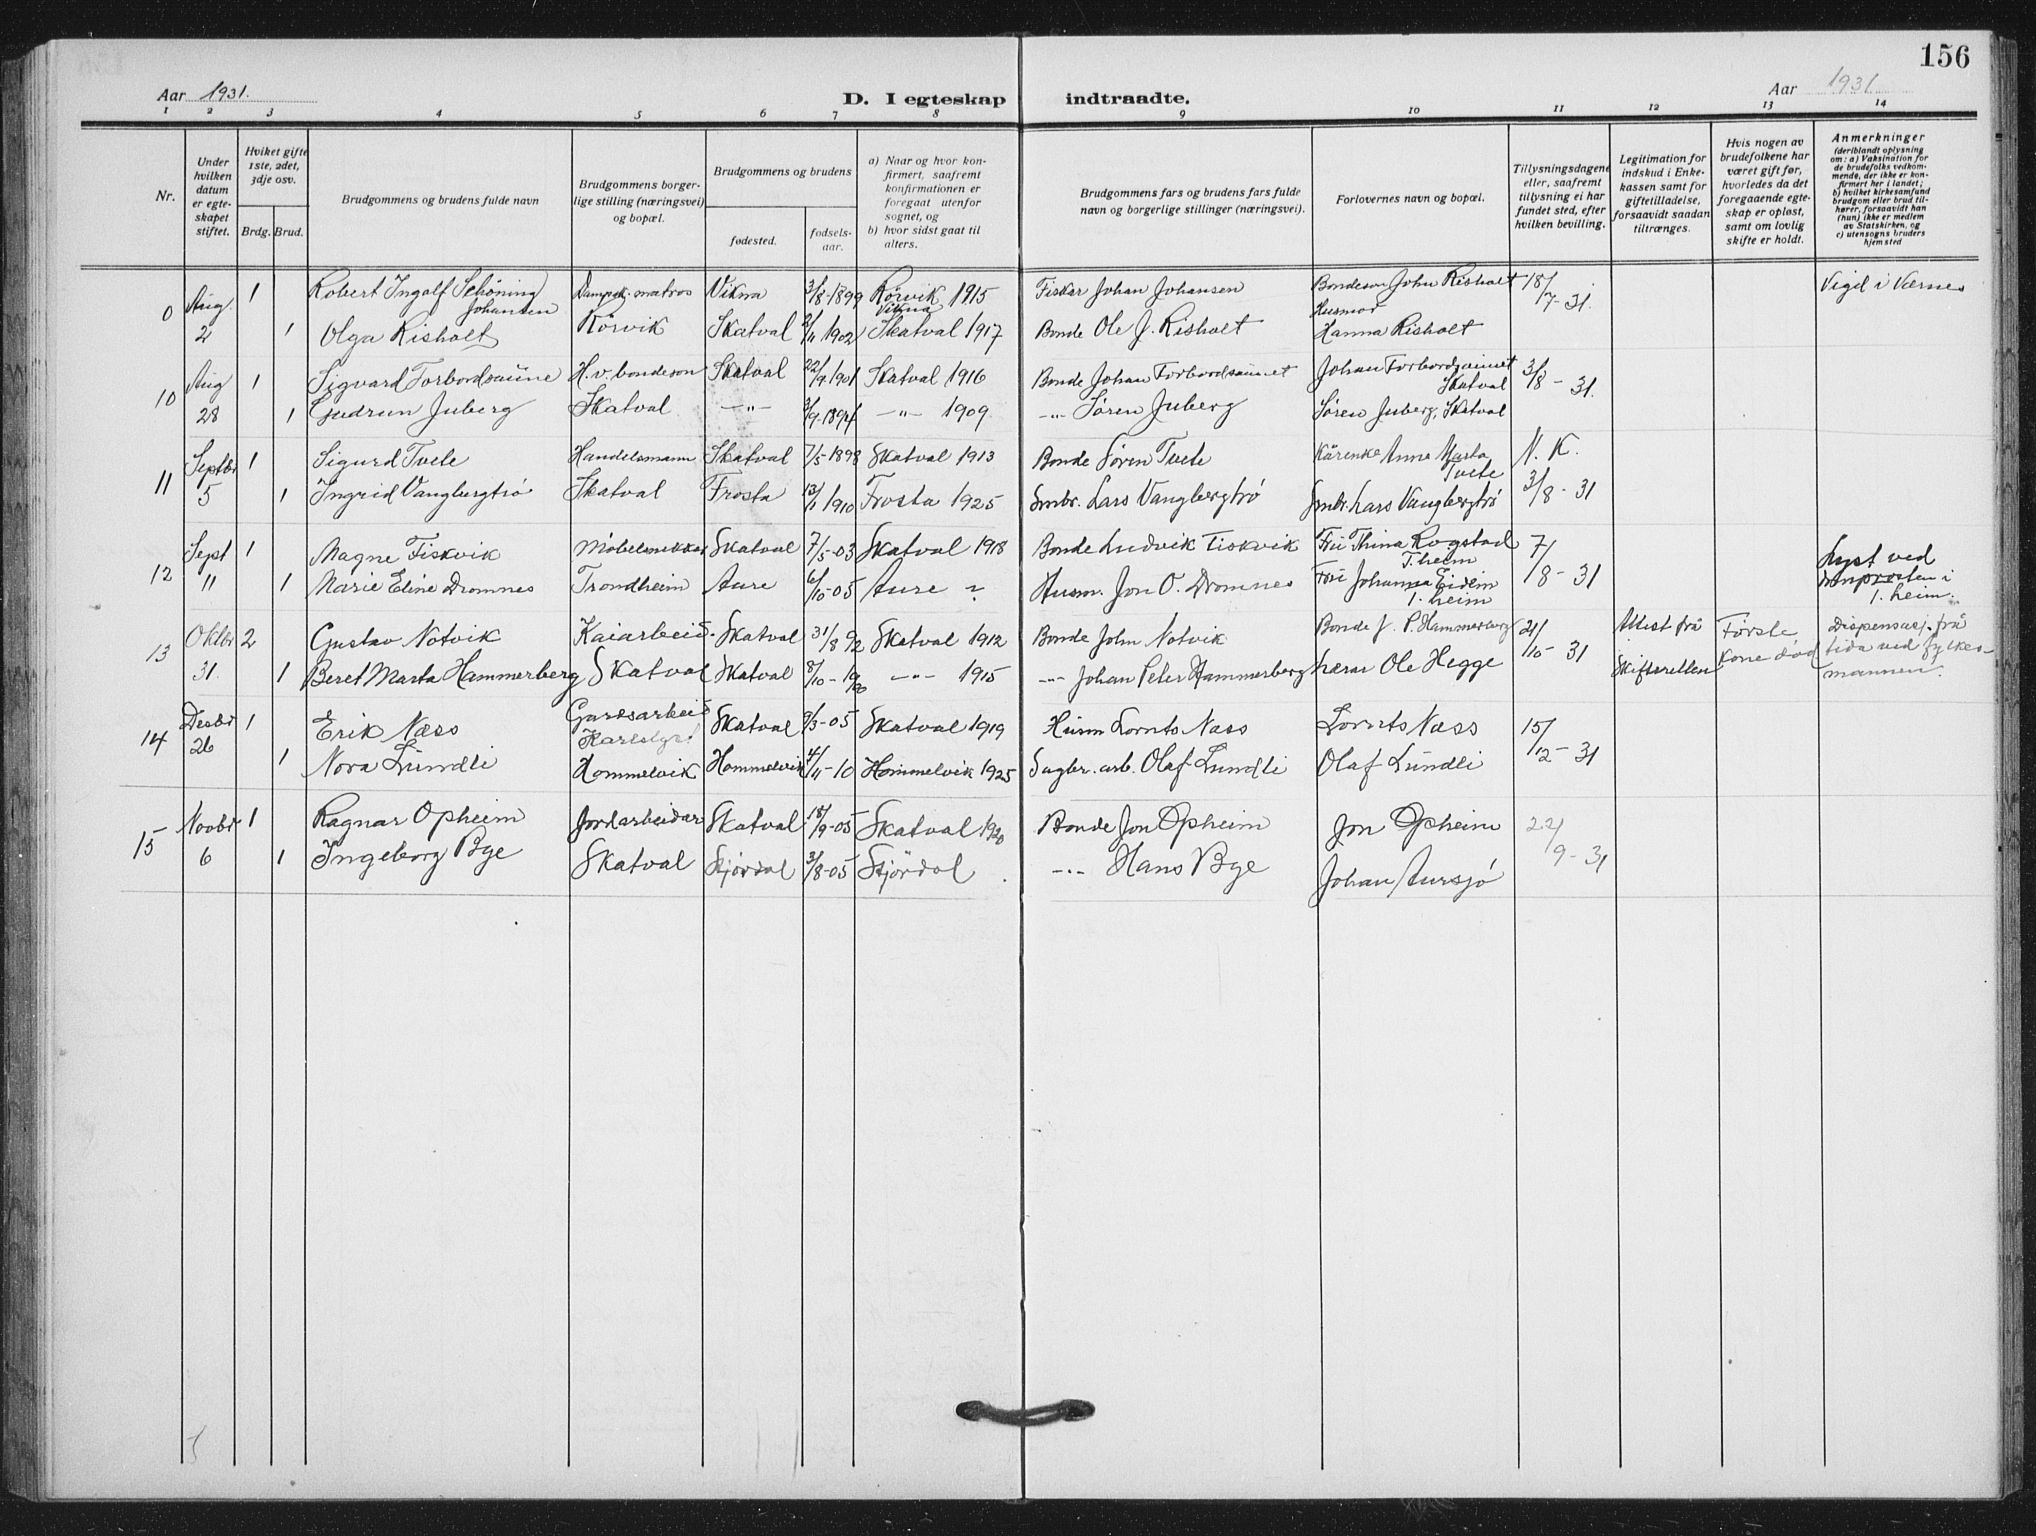 156
Aar 1931.
D. I egteskap indtraadte.
Aar 1931
1 2 3 4 5 6 7 8 9 10 11 12 13 14
Nr.
Under hvilken datum er egte-skapet stiftet.
Hviket gifte 1ste, 2det, 3dje osv.
Brdg. Brud.
Brudgommens og brudens fulde navn
Brudgommens borger-lige stilling (næringsvei) og bopæl.
Brudgommens og brudens
fødested.
fødsels-aar.
a) Naar og hvor kon-firmert, saafremt konfirmationen er foregaat utenfor sognet, og
b) hvor sidst gaat til alters.
Brudgommens fars og brudens fars fulde navn og borgerlige stillinger (næringsvei).
Forlovernes navn og bopæl.
Tillysningsdagene eller, saafremt tillysning ei har fundet sted, efter hvilken bevilling.
Legitimation for indskud i Enke-kassen samt for giftetilladelse, forsaavidt saadan tiltrænges.
Hvis nogen av brudefolkene har været gift før, hvorledes da det foregaaende egte-skap er opløst, samt om lovlig skifte er holdt.
Anmerkninger (deriblandt oplysning om: a) Vaksination for de brudefolks vedkom-mende, der ikke er kon-firmert her i landet; b) hvilket kirkesamfund brudgom eller brud til-hører, forsaavidt han (hun) ikke er medlem av Statskirken, og c) utensogns bruders hjemsted
0 Aug 1 Robert Ingolf Schöning Johansen Dampsk. matros Vikna 3/8-1899 Rörvik 1915 Vikna Fisker Johan Johansen Bondeson John Risholt 18/7-31. Vigd i Værnes
2 1 Olga Risholt Rörvik Skatval 2/11 1902 Skatval 1917 Bonde Ole J. Risholt Husmor Hanna Risholt
10 Aug 1 Sigvard Forbordsaune H.v. bondeson Skatval 22/9 1901 Skatval 1916 Bonde Johan Forbordsaunet Johan Forbordsaunet Skatval 3/8-31.
28 1 Gudrun Juberg Skatval -"- 3/9-1894 -"- 1909 -"- Søren Juberg Søren Juberg, Skatval
11 Septbr 1 Sigurd Tvete Handelsmann Skatval 7/5-1898 Skatval 1913 Bonde Søren Tvete Kårenke Anne Marta Tvete N. K.
5 1 Ingrid Vangbergtrø Skatval Frosta 13/1 1910 Frosta 1925 Smbr. Lars Vangbergtrø Smbr. Lars Vangbergtrø 3/8-31
12 Sept 1 Magne Fiskvik Möbelsnekker Skatval 7/5-03 Skatval 1918 Bonde Ludvik Fiskvik Fru Thina Rogstad T.heim 7/8-31 Lyst ved
11 1 Marie Eline Dromnes Trondheim Aure 6/10-05 Aure ? Husm. Jon O. Dromnes Fru Johanna Eidem T.heim domprosten i T.heim.
13 Oktbr 2 Gustav Notvik Kaiarbeid. Skatval 31/8 92 Skatval 1912 Bonde John Notvik Bonde J. P. Hammerberg 21/10-31 Attest frå Skifteretten Første kone død Dispensasj. frå tida ved fylkes-mannen.
31. 1 Beret Marta Hammerberg Skatval Skatval 8/10-1900 -"- 1915 -"- Johan Peter Hammerberg Lærar Ole Hegge
14 Desbr 1 Erik Næss Gardsarbeid Skatval 9/3-05 Skatval 1919 Husm Lornts Næss Lornts Næss 15/12-31
26 1 Nora Lündli Hommelvik Hommelvik 4/11-10 Hommelvik 1925 Sagbr. arb. Olaf Lündli Olaf Lündli
15 Novbr 1 Ragnar Opheim Jordarbeidar Skatval 18/9-05 Skatval 1920 Bonde Jon Opheim Jon Opheim 22/9-31
6 1 Ingeborg Bye Skatval Stjørdal 3/8-05 Stjørdal -"- Hans Bye Johan Aursjö